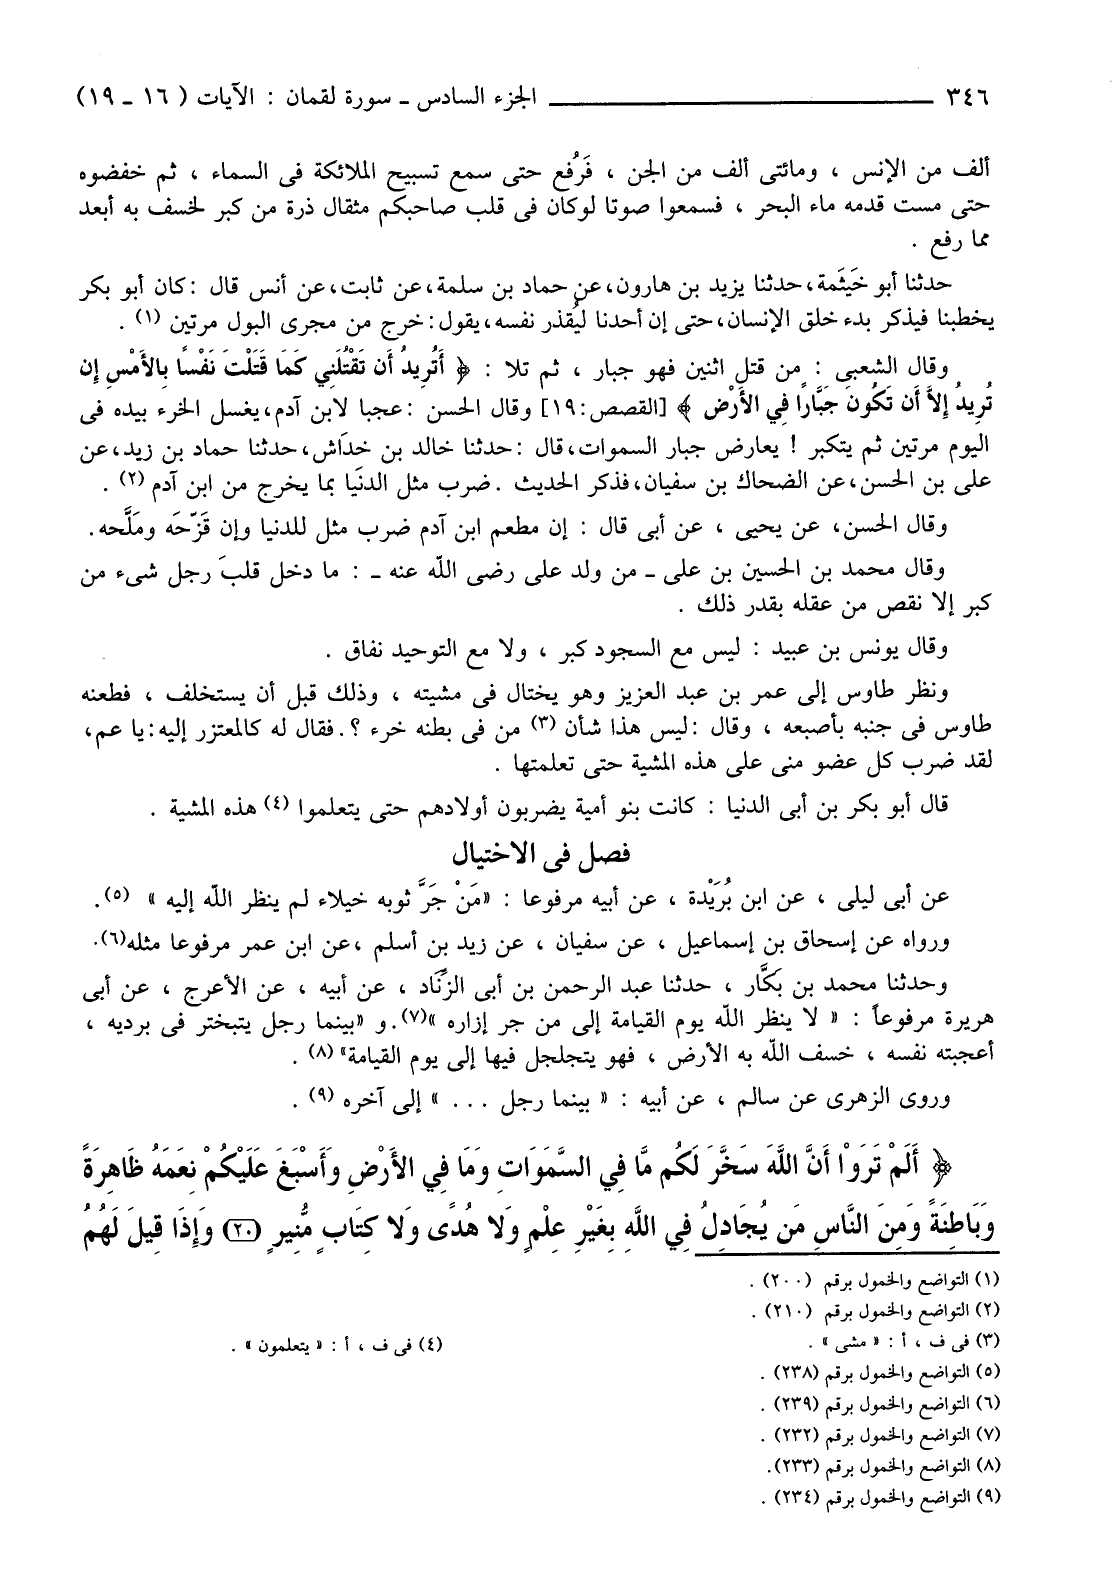 ٣٤٦ ــــــــــ الجزء السادس ـ سورة لقمان : الآيات ( ١٦ ـ ١٩)
ألف من الإنس ، ومائتى ألف من الجن ، فَرُفع حتى سمع تسبيح الملائكة فى السماء ، ثم خفضوه
حتى مست قدمه ماء البحر ، فسمعوا صوتا لوكان فى قلب صاحبكم مثقال ذرة من كبر لخسف به أبعد
مما رفع .
حدثنا أبو خَيَثَمة، حدثنا يزيد بن هارون، عن حماد بن سلمة، عن ثابت، عن أنس قال : كان أبو بكر
يخطبنا فيذكر بدء خلق الإنسان، حتى إن أحدنا ليُقذر نفسه، يقول: خرج من مجرى البول مرتين (١) .
وقال الشعبى : من قتل اثنين فهو جبار ، ثم تلا : ﴿ أَتُرِيدُ أَن تَقْتُلَنِي كَمَا قَتَلْتَ نَفْسًا بِالأَمْسِ إِن
تُرِيدُ إِلاَّ أَن تَكُونَ جَبَّارًا فِي الأَرْضِ ﴾ [القصص: ١٩] وقال الحسن : عجبا لابن آدم، يغسل الخرء بيده فى
اليوم مرتين ثم يتكبر ! يعارض جبار السموات، قال : حدثنا خالد بن خدَاش، حدثنا حماد بن زيد، عن
على بن الحسن، عن الضحاك بن سفيان، فذكر الحديث . ضرب مثل الدنيا بما يخرج من ابن آدم (٢) .
وقال الحسن، عن يحيى ، عن أبى قال : إن مطعم ابن آدم ضرب مثل للدنيا وإن قَزّحَه ومَلَّحه.
وقال محمد بن الحسين بن على ـ من ولد على رضى اللّه عنه ـ : ما دخل قلبَ رجل شىء من
كبر إلا نقص من عقله بقدر ذلك .
وقال يونس بن عبيد : ليس مع السجود كبر ، ولا مع التوحيد نفاق .
ونظر طاوس إلى عمر بن عبد العزيز وهو يختال فى مشيته ، وذلك قبل أن يستخلف ، فطعنه
طاوس فى جنبه بأصبعه ، وقال : ليس هذا شأن (٣) من فى بطنه خرء ؟. فقال له كالمعتزر إليه: يا عم،
لقد ضرب كل عضو منى على هذه المشية حتى تعلمتها .
قال أبو بكر بن أبى الدنيا : كانت بنو أمية يضربون أولادهم حتى يتعلموا (٤) هذه المشية .
فصل فى الاختيال
عن أبى ليلى ، عن ابن بُرَيْدة ، عن أبيه مرفوعا : «مَنْ جَرَّ ثوبه خيلاء لم ينظر اللّه إليه » (٥).
ورواه عن إسحاق بن إسماعيل ، عن سفيان ، عن زيد بن أسلم ، عن ابن عمر مرفوعا مثله(٦).
وحدثنا محمد بن بكَّار ، حدثنا عبد الرحمن بن أبى الزِّنَاد ، عن أبيه ، عن الأعرج ، عن أبى
هريرة مرفوعاً : « لا ينظر اللّه يوم القيامة إلى من جر إزاره »(٧). و «بينما رجل يتبختر فى برديه ،
أعجبته نفسه ، خسف اللّه به الأرض ، فهو يتجلجل فيها إلى يوم القيامة» (٨) .
وروى الزهرى عن سالم ، عن أبيه : « بينما رجل ... » إلى آخره (٩) .
﴿ أَلَمْ تَرَوْا أَنَّ اللَّهَ سَخَّرَ لَكُم مَّا فِي السَّمَوَاتِ وَمَا فِي الأَرْضِ وَأَسْبَغَ عَلَيْكُمْ نِعَمَهُ ظَاهِرَةً
وَبَاطِنَةً وَمِنَ النَّاسِ مَن يُجَادِلُ فِي اللَّهِ بِغَيْرِ عِلْمٍ وَلا هُدًى وَلا كِتَابٍ مُّنِيرٍ (٢٠) وَإِذَا قِيلَ لَهُمُ
(١) التواضع والخمول برقم (٢٠٠) .
(٢) التواضع والخمول برقم (٢١٠) .
(٣) فى ف ، أ : « مشى » . (٤) فى ف ، أ : « يتعلمون » .
(٥) التواضع والخمول برقم (٢٣٨) .
(٦) التواضع والخمول برقم (٢٣٩) .
(٧) التواضع والخمول برقم (٢٣٢) .
(٨) التواضع والخمول برقم (٢٣٣).
(٩) التواضع والخمول برقم (٢٣٤) .